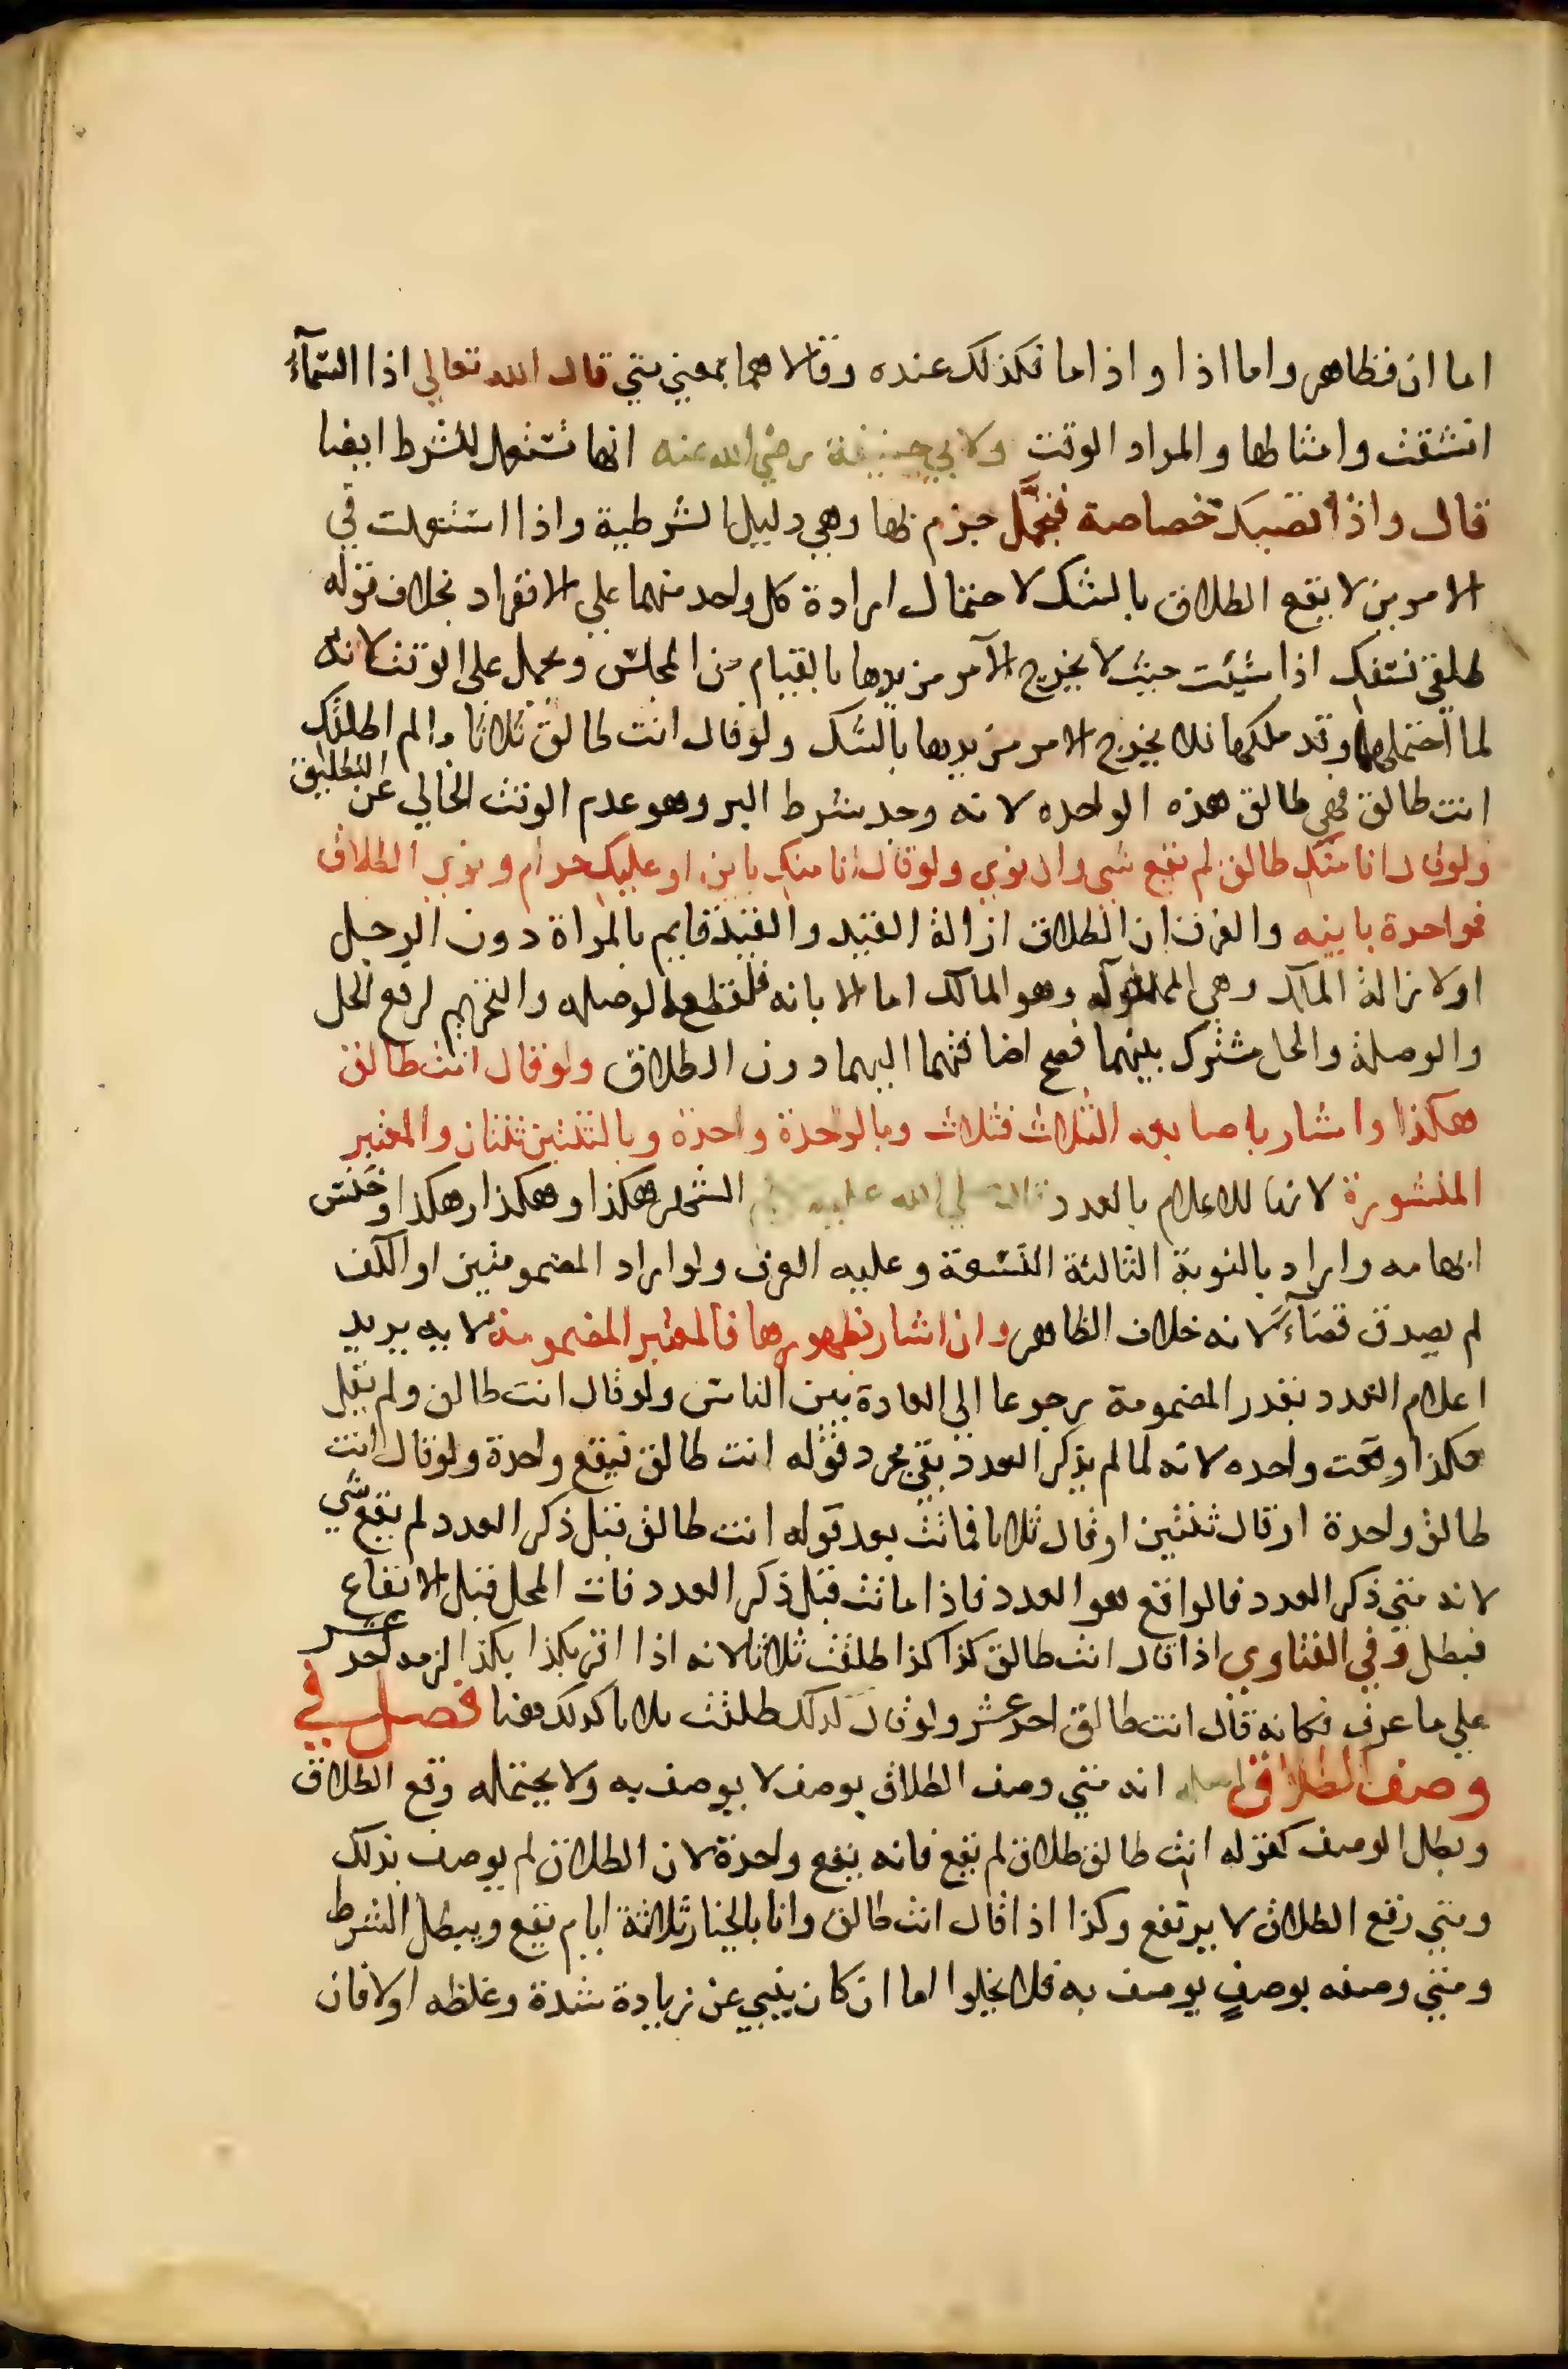 اما ان فظاهر واما اذا واذاما فكذلك عنده وقالا هما بمعني متي قال الله تعالي اذا السمآء
انشقت وامثالها والمراد الوقت ولابي حنيفة رضي الله عنه انها تستعمل للشرط ايضا
قال واذا تصبك خصاصة فتجمل جزم بها وهي دليل الشرطية واذا استعملت في
الامرين لا يقع الطلاق بالشك لاحتمال ارادة كل واحد منهما علي الانفراد بخلاف قوله
طلقي نفسك اذا شيئت حيث لا يخرج الآمر من يدها بالقيام من المجلس ويحمل علي الوقت لانه
لما احتملهما وقد ملكها فلا يخرج الامر من يدها بالشك ولو قال انت طالق ثلاثا مالم اطلقك
انت طالق فهي طالق هذه الواحده لانه وجد شرط البر وهو عدم الوقت الخالي عن التطليق
ولو قال انا منك طالق لم يقع شي وان نوي ولو قال انا منك باين او عليك حرام ونوي الطلاق
فواحدة باينه والفرق ان الطلاق ازالة القيد والقيد قايم بالمراة دون الرجل
او لازالة الملك وهي المملوكه وهو المالك اما الابانه فلقطع الوصله والتحريم لرفع الحل
والوصلة والحل مشترك بينهما فصح اضافتهما اليهما دون الطلاق ولو قال انت طالق
هكذا واشار باصابعه الثلاث فثلاث وبالواحدة واحدة وبالثنتين ثنتان والمعتبر
المنشورة لانها للاعلام بالعدد قال صلي الله عليه وسلم الشهر هكذا وهكذا وهكذا وخنس
ابهامه واراد بالنوبة الثالثة التسعة وعليه العرف ولو اراد المضمومتين او الكف
لم يصدق قضآء لانه خلاف الظاهر وان اشار بظهورها فالمعتبر المضمومة لانه يريد
اعلام العدد بقدر المضمومة رجوعا الي العادة بين الناس ولو قال انت طالق ولم يقل
هكذا وقعت واحده لانه لما لم يذكر العدد بقي مجرد قوله انت طالق فيقع واحدة ولو قال انت
طالق واحدة او قال ثنتين او قال ثلاثا فماتت بعد قوله انت طالق قبل ذكر العدد لم يقع شي
لانه متي ذكر العدد فالواقع هو العدد فاذا ماتت قبل ذكر العدد فات المحل قبل الايقاع
فبطل وفي الفتاوي اذا قال انت طالق كذا كذا طلقت ثلاثا لانه اذا اقر بكذا بكذا لزمه احد عشر
علي ما عرف فكانه قال انت طالق احد عشر ولو قال كذلك طلقت ثلاثا كذلك هنا فصل في
وصف الطلاق اصله انه متي وصف الطلاق بوصف لا يوصف به ولا يحتمله وقع الطلاق
وبطل الوصف كقوله انت طالق طلاق لم يقع فانه يقع واحدة لان الطلاق لم يوصف بذلك
ومتي وقع الطلاق لا يرتفع وكذا اذا قال انت طالق وانا بالخيار ثلاثة ايام يقع ويبطل الشرط
ومتي وصفه بوصفٍ يوصف به فلا يخلوا اما ان كان ينبي عن زيادة شدة وغلظه اولا فان